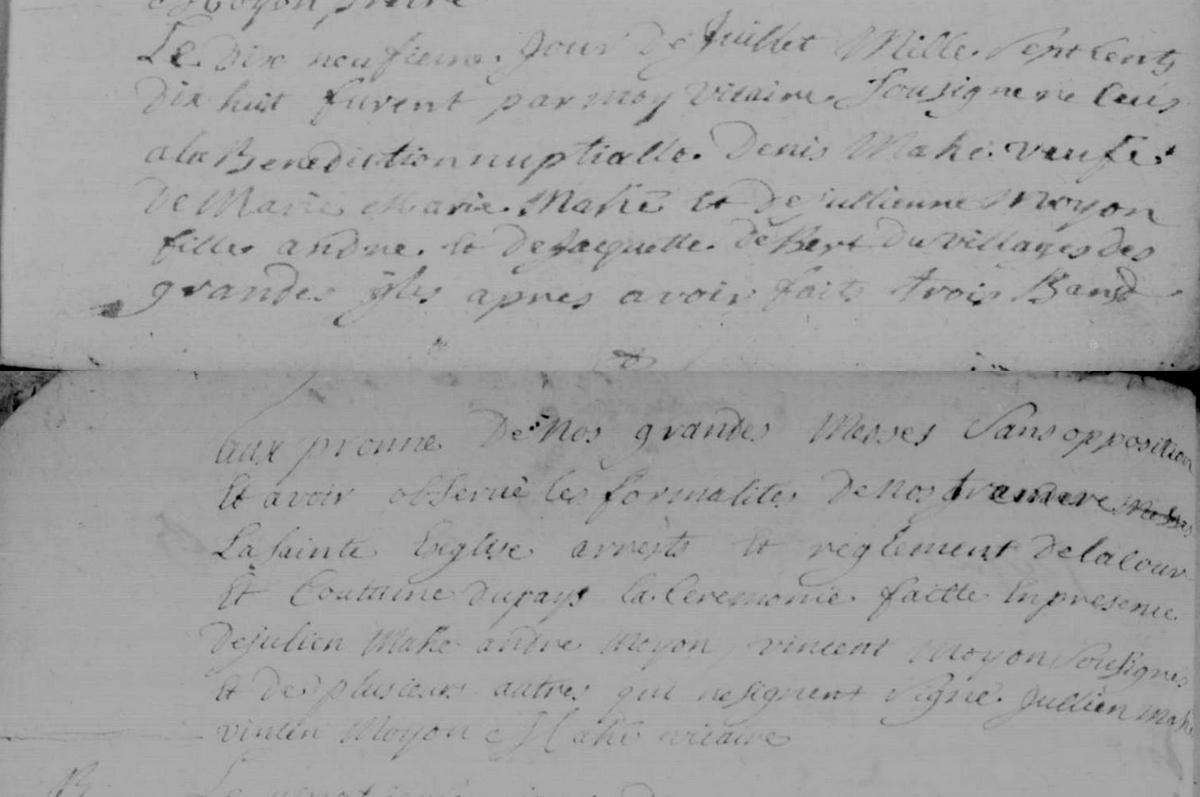 Moyon pretre
Le dix neufieme Jour de Juillet Mille Sept Cents
Dix huit furent par moy vicaire Sousigne re ceus
a la Benediction nuptialle Denis Mahé veuf
De Marie Marie Mahé Et de jullienne Moyon
fille andre Et de Jacquette de Bert du village des
grandes isles apres avoir faits trois Bans
aux pronne De Nos grandes Messes Sans opposition
Et avoir observé les formalites De nos
La Sainte Eeglise arrests Et reglement de la Cour
Et Coutume du pays la Ceremonie faitte En presence
De julien Mahe andre Moyon vincent Moyon Sousignes
Et de plusieurs autres qui ne signent Signe Jullien Mahe
vincen Moyon Mahé vicaire